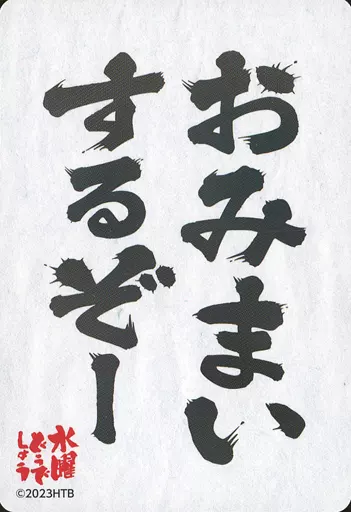 おみまい
するぞー
水曜
どうで
しょう
©2023HTB